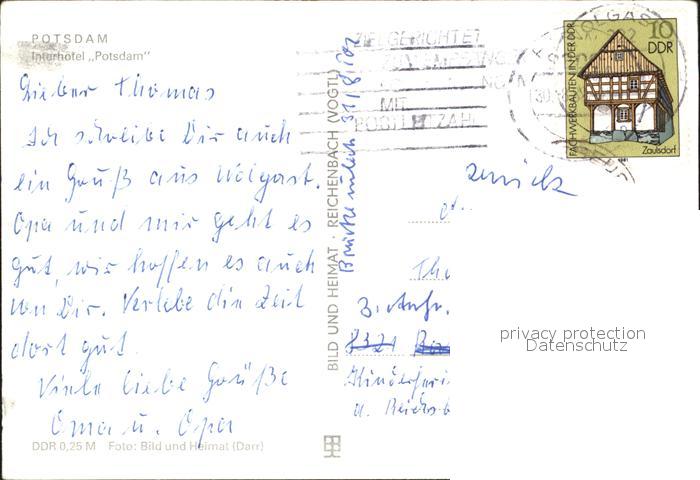 POTSDAM
Interhotel „Potsdam“
Lieber Thomas
Ich schreibe Dir auch
ein Gruß aus Wolgast.
Opa und mir geht es
gut, wir hoffen es auch
von Dir. Verlebe die Zeit
dort gut.
Viele liebe Grüße
Oma u. Opa
DDR 0,25 M Foto: Bild und Heimat (Darr)
BILD UND HEIMAT · REICHENBACH (VOGTL)
ZIELGERICHTET
MIT
POSTLEITZAHL
WOLGAST
10
DDR
FACHWERKBAUTEN IN DER DDR
Zaulsdorf
1981
zurück
Th
privacy protection
Datenschutz